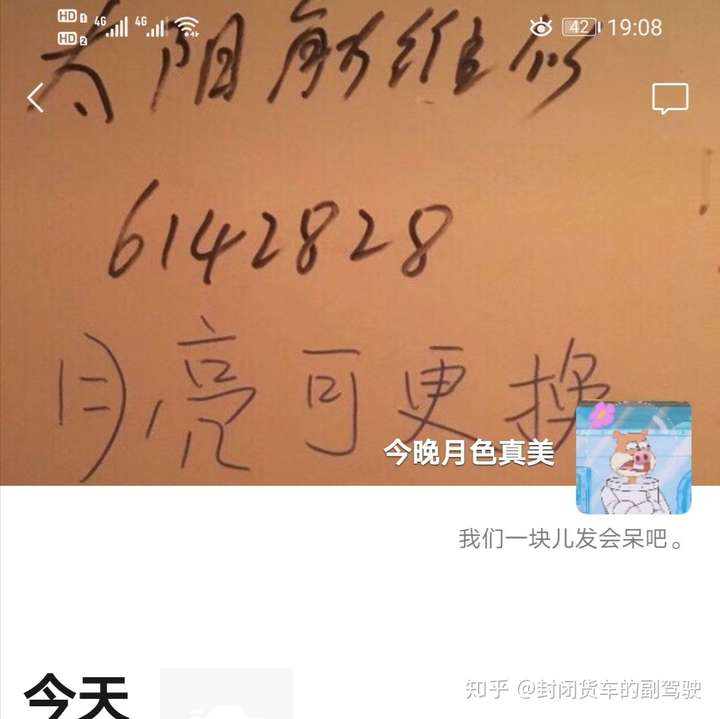 HD 1 4G 4G 42 19:08
HD 2
太阳能维修
6142828
月亮可更换
今晚月色真美
我们一块儿发会呆吧。
今天
知乎 @封闭货车的副驾驶